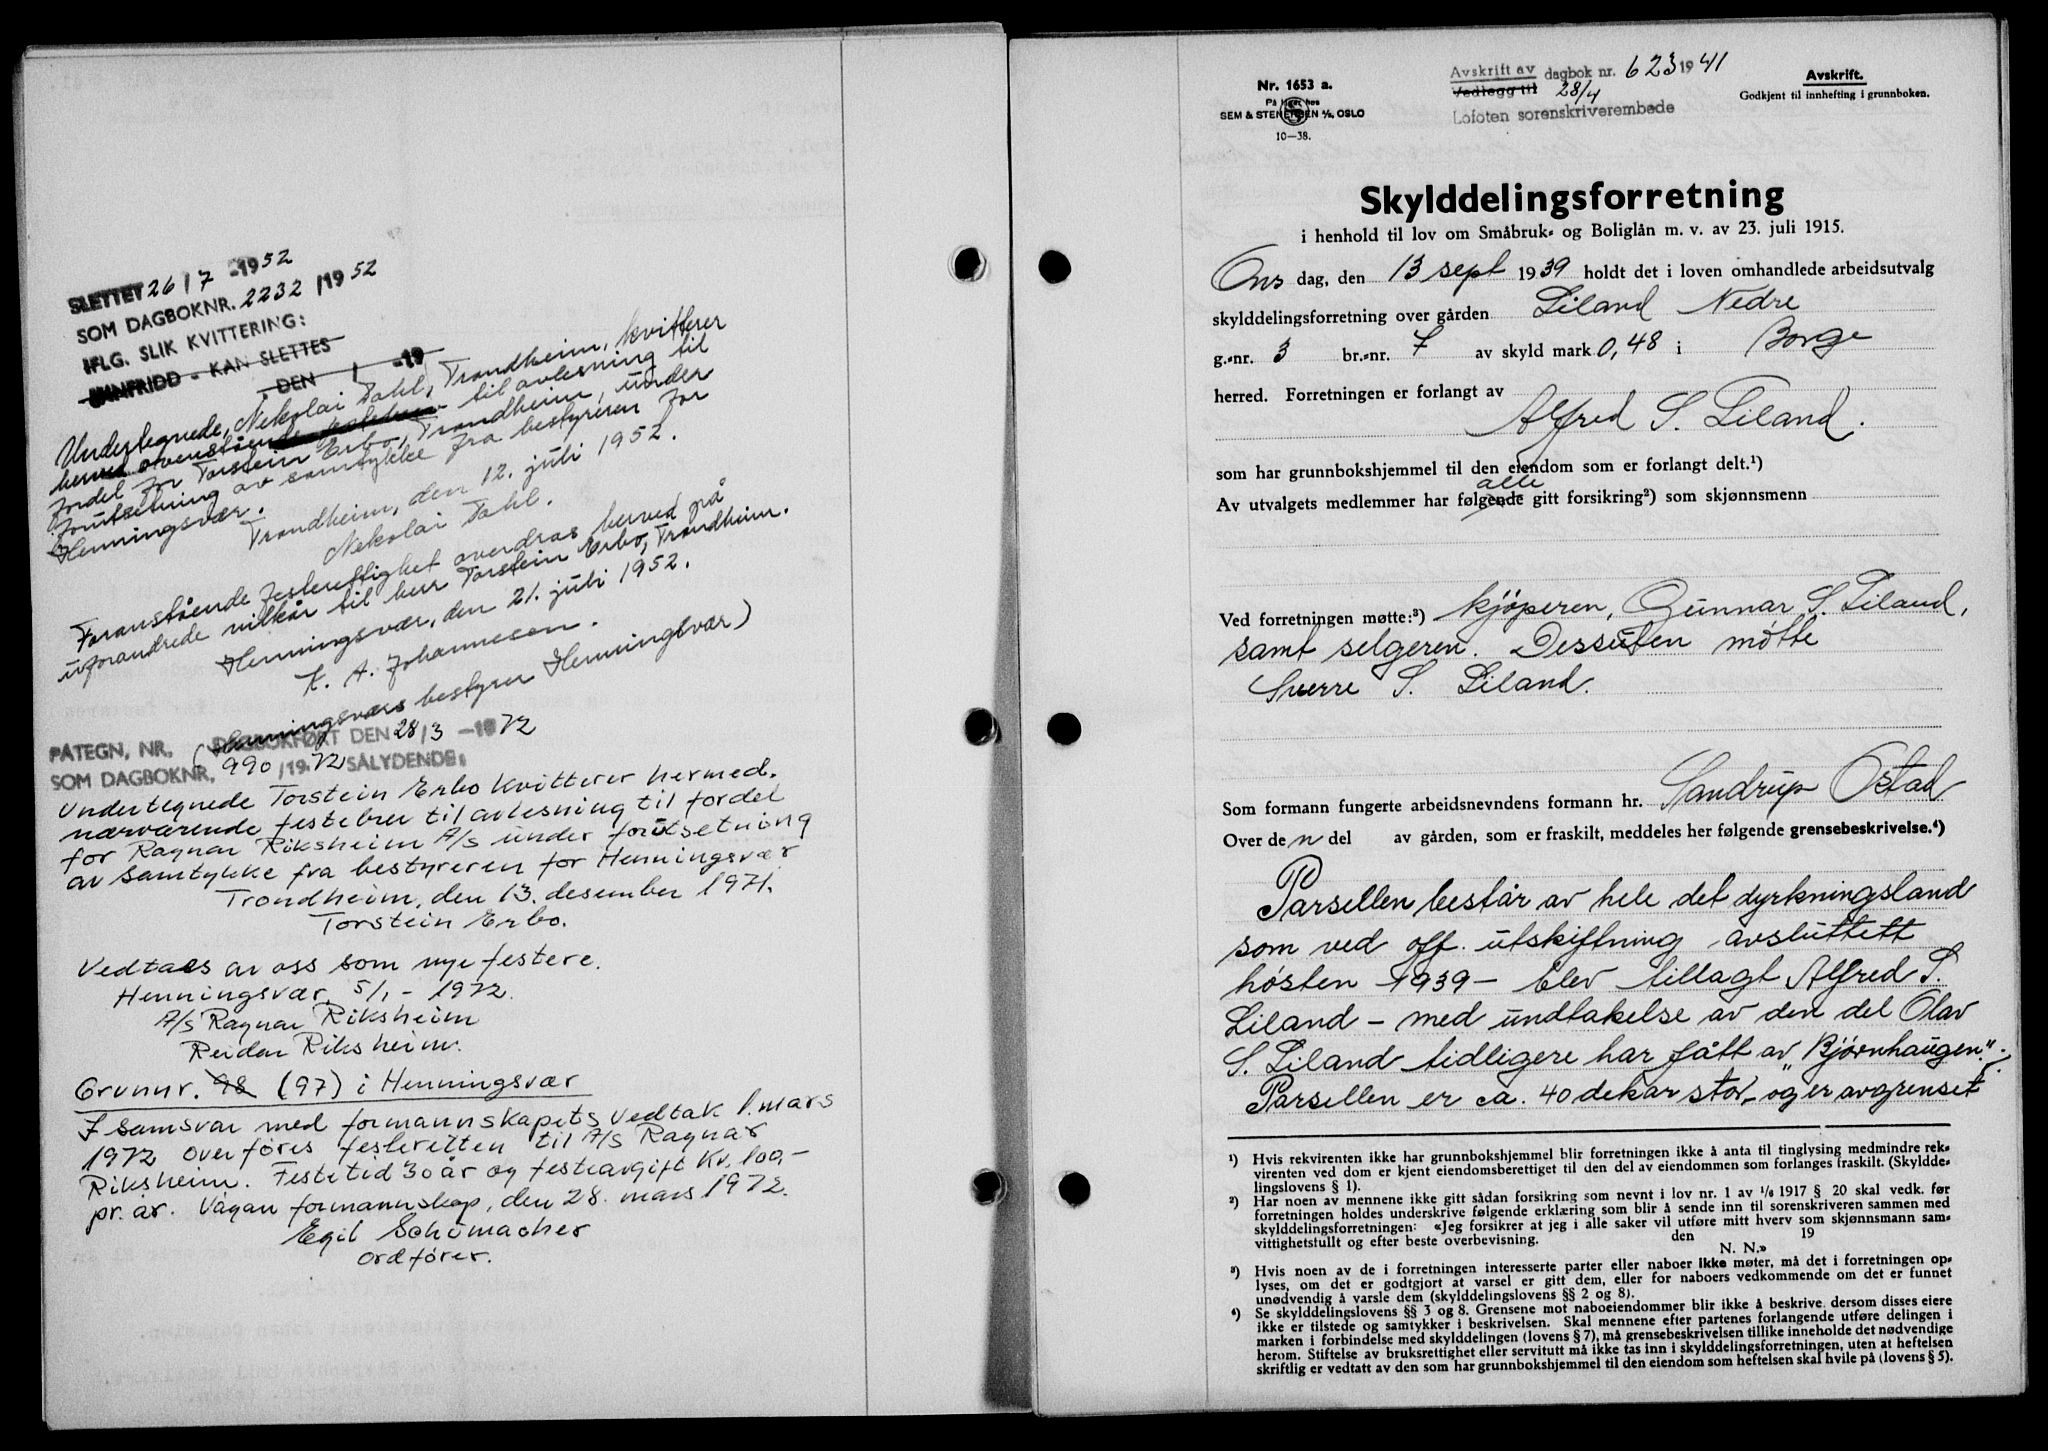 SLETTET 26/7 -1952
SOM DAGBOKNR. 2232 /1952
IFLG. SLIK KVITTERING:
KAN SLETTES
DEN / -19
Undertegnede, Nekolai Dahl, Trondheim, kvitterer
herved ovenstående til avlesning til
fordel for Torstein Erbo, Trondheim, under
forutsetning av samtykke fra bestyreren for
Henningsvær.
Trondheim, den 12. juli 1952.
Nekolai Dahl.
Foranstående festerettighet overdras herved på
uforandrede vilkår til herr Torstein Erbo, Trondheim.
Henningsvær, den 21. juli 1952.
K. A. Johannesen.
(Henningsværs bestyrer Henningsvær)
PATEGN, NR. DAGBOKFØRT DEN 28/3 -1972
SOM DAGBOKNR. 990 /1972 SÅLYDENDE:
Undertegnede Torstein Erbo kvitterer hermed.
nærværende festebrev til avlesning til fordel
for Ragnar Riksheim A/S under forutsetning
av samtykke fra bestyreren for Henningsvær
Trondheim, den 13. desember 1971.
Torstein Erbo.
Vedtaes av oss som nye festere.
Henningsvær, 5/1 - 1972.
A/S Ragnar Riksheim
Reidar Riksheim.
Grunnr. 98 (97) i Henningsvær
I samsvar med formannskapets vedtak 1. mars
1972 overføres festeretten til A/S Ragnar
Riksheim. Festetid 30 år og festeavgift Kr. 100,-
pr. år. Vågan formannskap, den 28. mars 1972.
Egil Schumacher
ordfører.
Nr. 1653 a.
På lager hos
SEM & STENERSEN A/S, OSLO
10—38.
Avskrift av dagbok nr. 623 1941
Vedlegg til 28/4
Lofoten sorenskriverembede
Avskrift.
Godkjent til innhefting i grunnboken.
Skylddelingsforretning
i henhold til lov om Småbruk- og Boliglån m. v. av 23. juli 1915.
Ons dag, den 13 sept 1939 holdt det i loven omhandlede arbeidsutvalg
skylddelingsforretning over gården Liland Nedre
g.-nr. 3 br.-nr. 7 av skyld mark 0,48 i Borge
herred. Forretningen er forlangt av
Alfred S. Liland.
som har grunnbokshjemmel til den eiendom som er forlangt delt.¹)
alle
Av utvalgets medlemmer har følgende gitt forsikring²) som skjønnsmenn
Ved forretningen møtte:³) kjøperen, Gunnar S. Liland,
samt selgeren. Dessuten møtte
Sverre S. Liland.
Som formann fungerte arbeidsnevndens formann hr. Sandrup Ostad
Over den del av gården, som er fraskilt, meddeles her følgende grensebeskrivelse.⁴)
Parsellen består av hele det dyrkningsland
som ved off. utskiftning avsluttett
høsten 1939 - blev tillagt Alfred S.
Liland - med undtakelse av den del Olav
S. Liland tidligere har fått av "Bjørnhaugen".
Parsellen er ca. 40 dekar stor, og er avgrenset
¹) Hvis rekvirenten ikke har grunnbokshjemmel blir forretningen ikke å anta til tinglysing medmindre rek-
virenten ved dom er kjent eiendomsberettiget til den del av eiendommen som forlanges fraskilt. (Skyldde-
lingslovens § 1).
²) Har noen av mennene ikke gitt sådan forsikring som nevnt i lov nr. 1 av 1/6 1917 § 20 skal vedk. før
forretningen holdes underskrive følgende erklæring som blir å sende inn til sorenskriveren sammen med
skylddelingsforretningen: «Jeg forsikrer at jeg i alle saker vil utføre mitt hverv som skjønnsmann sam-
vittighetsfullt og efter beste overbevisning. den 19
N. N.»
³) Hvis noen av de i forretningen interesserte parter eller naboer ikke møter, må det i forretningen op-
lyses, om det er godtgjort at varsel er gitt dem, eller for naboers vedkommende om det er funnet
unødvendig å varsle dem (skylddelingslovens §§ 2 og 8).
⁴) Se skylddelingslovens §§ 3 og 8. Grensene mot naboeiendommer blir ikke å beskrive dersom disses eiere
ikke er tilstede og samtykker i beskrivelsen. Skal mennene efter partenes forlangende utføre delingen i
marken i forbindelse med skylddelingen (lovens § 7), må grensebeskrivelsen tillike inneholde det nødvendige
herom. Stiftelse av bruksrettighet eller servitutt må ikke tas inn i skylddelingsforretningen, uten at heftelsen
skriftlig er vedtatt av den som har grunnbokshjemmel til den eiendom som heftelsen skal hvile på (lovens § 5).